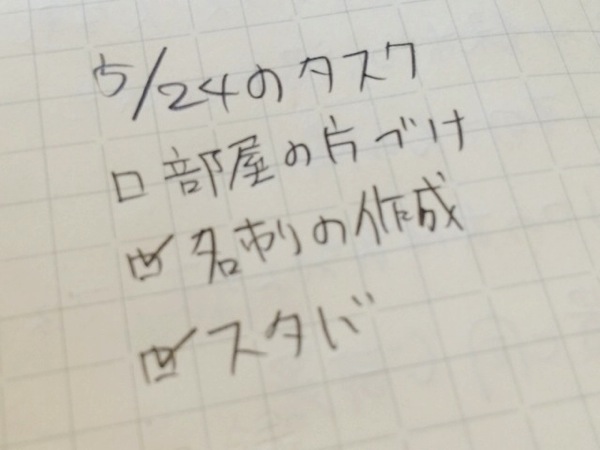 5/24のタスク
□ 部屋の片づけ
☑ 名刺の作成
☑ スタバ